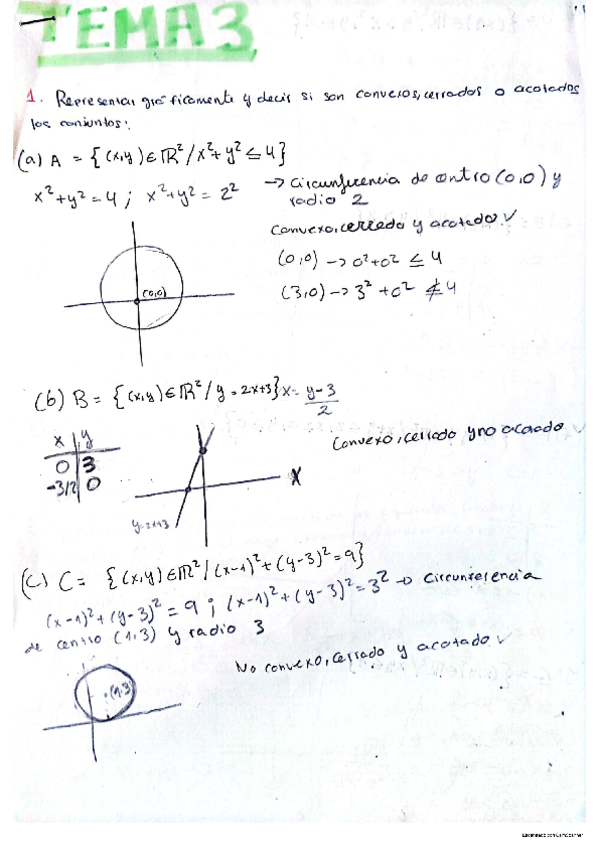 TEMA3
1. Representar gráficamente y decir si son convexos, cerrados o acotados
los conjuntos:
(a) A = {(x,y)∈ℝ²/x²+y²≤4}
x²+y²=4; x²+y²=2²
→ Circunferencia de centro (0,0) y
radio 2
Convexo, cerrado y acotado ✓
(0,0) → 0²+0² ≤ 4
(3,0) → 3²+0² ≰ 4
(0,0)
(b) B = {(x,y)∈ℝ²/y=2x+3} x= y-3/2
Convexo, cerrado y no acotado ✓
x | y
0 | 3
-3/2 | 0
X
y=2x+3
(c) C = {(x,y)∈ℝ²/(x-1)²+(y-3)²=9}
(x-1)²+(y-3)²=9; (x-1)²+(y-3)²=3² → Circunferencia
de centro (1,3) y radio 3
No convexo, cerrado y acotado ✓
(1,3)
Escaneado con CamScanner